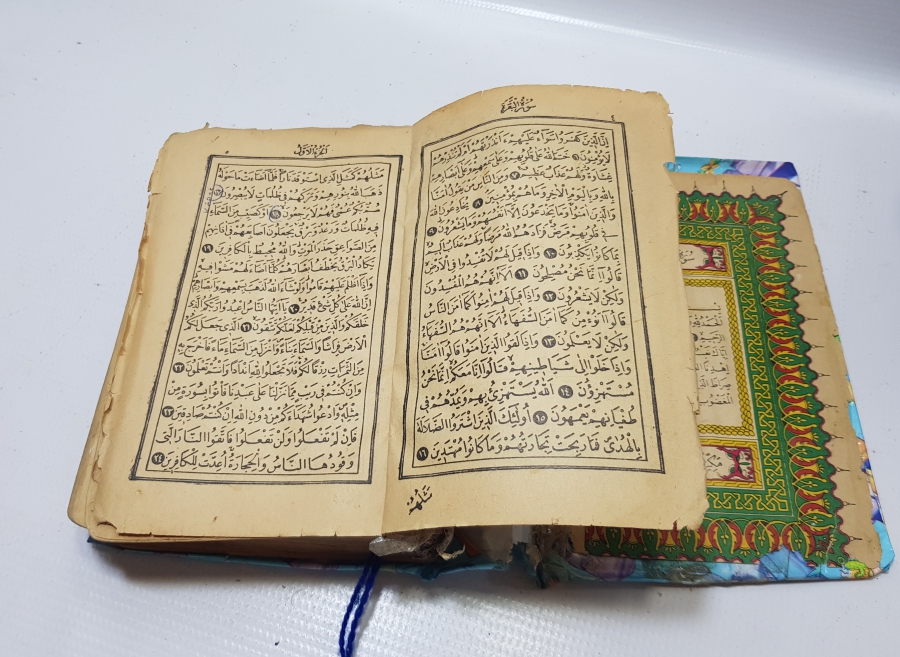 سورة البقرة
٤
إِنَّ الَّذِينَ كَفَرُوا سَوَاءٌ عَلَيْهِمْ ءَاَنْذَرْتَهُمْ اَمْ لَمْ تُنْذِرْهُمْ
لَا يُؤْمِنُونَ ٦ خَتَمَ اللهُ عَلَى قُلُوبِهِمْ وَعَلَى سَمْعِهِمْ وَعَلَى اَبْصَارِهِمْ
غِشَاوَةٌ وَلَهُمْ عَذَابٌ عَظِيمٌ ٧ وَمِنَ النَّاسِ مَنْ يَقُولُ اٰمَنَّا
بِاللهِ وَبِالْيَوْمِ الْاٰخِرِ وَمَا هُمْ بِمُؤْمِنِينَ ٨ يُخَادِعُونَ اللهَ
وَالَّذِينَ اٰمَنُوا وَمَا يَخْدَعُونَ اِلَّا اَنْفُسَهُمْ وَمَا يَشْعُرُونَ ٩
فِي قُلُوبِهِمْ مَرَضٌ فَزَادَهُمُ اللهُ مَرَضًا وَلَهُمْ عَذَابٌ اَلِيمٌ
بِمَا كَانُوا يَكْذِبُونَ ١٠ وَاِذَا قِيلَ لَهُمْ لَا تُفْسِدُوا فِي الْاَرْضِ
قَالُوا اِنَّمَا نَحْنُ مُصْلِحُونَ ١١ اَلَا اِنَّهُمْ هُمُ الْمُفْسِدُونَ
وَلٰكِنْ لَا يَشْعُرُونَ ١٢ وَاِذَا قِيلَ لَهُمْ اٰمِنُوا كَمَا اٰمَنَ النَّاسُ
قَالُوا اَنُؤْمِنُ كَمَا اٰمَنَ السُّفَهَاءُ اَلَا اِنَّهُمْ هُمُ السُّفَهَاءُ
وَلٰكِنْ لَا يَعْلَمُونَ ١٣ وَاِذَا لَقُوا الَّذِينَ اٰمَنُوا قَالُوا اٰمَنَّا
وَاِذَا خَلَوْا اِلَى شَيَاطِينِهِمْ قَالُوا اِنَّا مَعَكُمْ اِنَّمَا نَحْنُ
مُسْتَهْزِؤُنَ ١٤ اَللهُ يَسْتَهْزِئُ بِهِمْ وَيَمُدُّهُمْ فِي
طُغْيَانِهِمْ يَعْمَهُونَ ١٥ اُولٰئِكَ الَّذِينَ اشْتَرَوُا الضَّلَالَةَ
بِالْهُدَى فَمَا رَبِحَتْ تِجَارَتُهُمْ وَمَا كَانُوا مُهْتَدِينَ ١٦
مَثَلُهُمْ
الجزء الاول
مَثَلُهُمْ كَمَثَلِ الَّذِي اسْتَوْقَدَ نَارًا فَلَمَّا اَضَاءَتْ مَا حَوْلَهُ
ذَهَبَ اللهُ بِنُورِهِمْ وَتَرَكَهُمْ فِي ظُلُمَاتٍ لَا يُبْصِرُونَ ١٧
صُمٌّ بُكْمٌ عُمْيٌ فَهُمْ لَا يَرْجِعُونَ ١٨ اَوْ كَصَيِّبٍ مِنَ السَّمَاءِ
فِيهِ ظُلُمَاتٌ وَرَعْدٌ وَبَرْقٌ يَجْعَلُونَ اَصَابِعَهُمْ فِي اٰذَانِهِمْ
مِنَ الصَّوَاعِقِ حَذَرَ الْمَوْتِ وَاللهُ مُحِيطٌ بِالْكَافِرِينَ ١٩
يَكَادُ الْبَرْقُ يَخْطَفُ اَبْصَارَهُمْ كُلَّمَا اَضَاءَ لَهُمْ مَشَوْا فِيهِ
وَاِذَا اَظْلَمَ عَلَيْهِمْ قَامُوا وَلَوْ شَاءَ اللهُ لَذَهَبَ بِسَمْعِهِمْ وَاَبْصَارِهِمْ
اِنَّ اللهَ عَلَى كُلِّ شَيْءٍ قَدِيرٌ ٢٠ يَا اَيُّهَا النَّاسُ اعْبُدُوا رَبَّكُمُ الَّذِي
خَلَقَكُمْ وَالَّذِينَ مِنْ قَبْلِكُمْ لَعَلَّكُمْ تَتَّقُونَ ٢١ اَلَّذِي جَعَلَ لَكُمُ
الْاَرْضَ فِرَاشًا وَالسَّمَاءَ بِنَاءً وَاَنْزَلَ مِنَ السَّمَاءِ مَاءً فَاَخْرَجَ بِهِ
مِنَ الثَّمَرَاتِ رِزْقًا لَكُمْ فَلَا تَجْعَلُوا لِلهِ اَنْدَادًا وَاَنْتُمْ تَعْلَمُونَ ٢٢
وَاِنْ كُنْتُمْ فِي رَيْبٍ مِمَّا نَزَّلْنَا عَلَى عَبْدِنَا فَأْتُوا بِسُورَةٍ مِنْ
مِثْلِهِ وَادْعُوا شُهَدَاءَكُمْ مِنْ دُونِ اللهِ اِنْ كُنْتُمْ صَادِقِينَ ٢٣
فَاِنْ لَمْ تَفْعَلُوا وَلَنْ تَفْعَلُوا فَاتَّقُوا النَّارَ الَّتِي
وَقُودُهَا النَّاسُ وَالْحِجَارَةُ اُعِدَّتْ لِلْكَافِرِينَ ٢٤